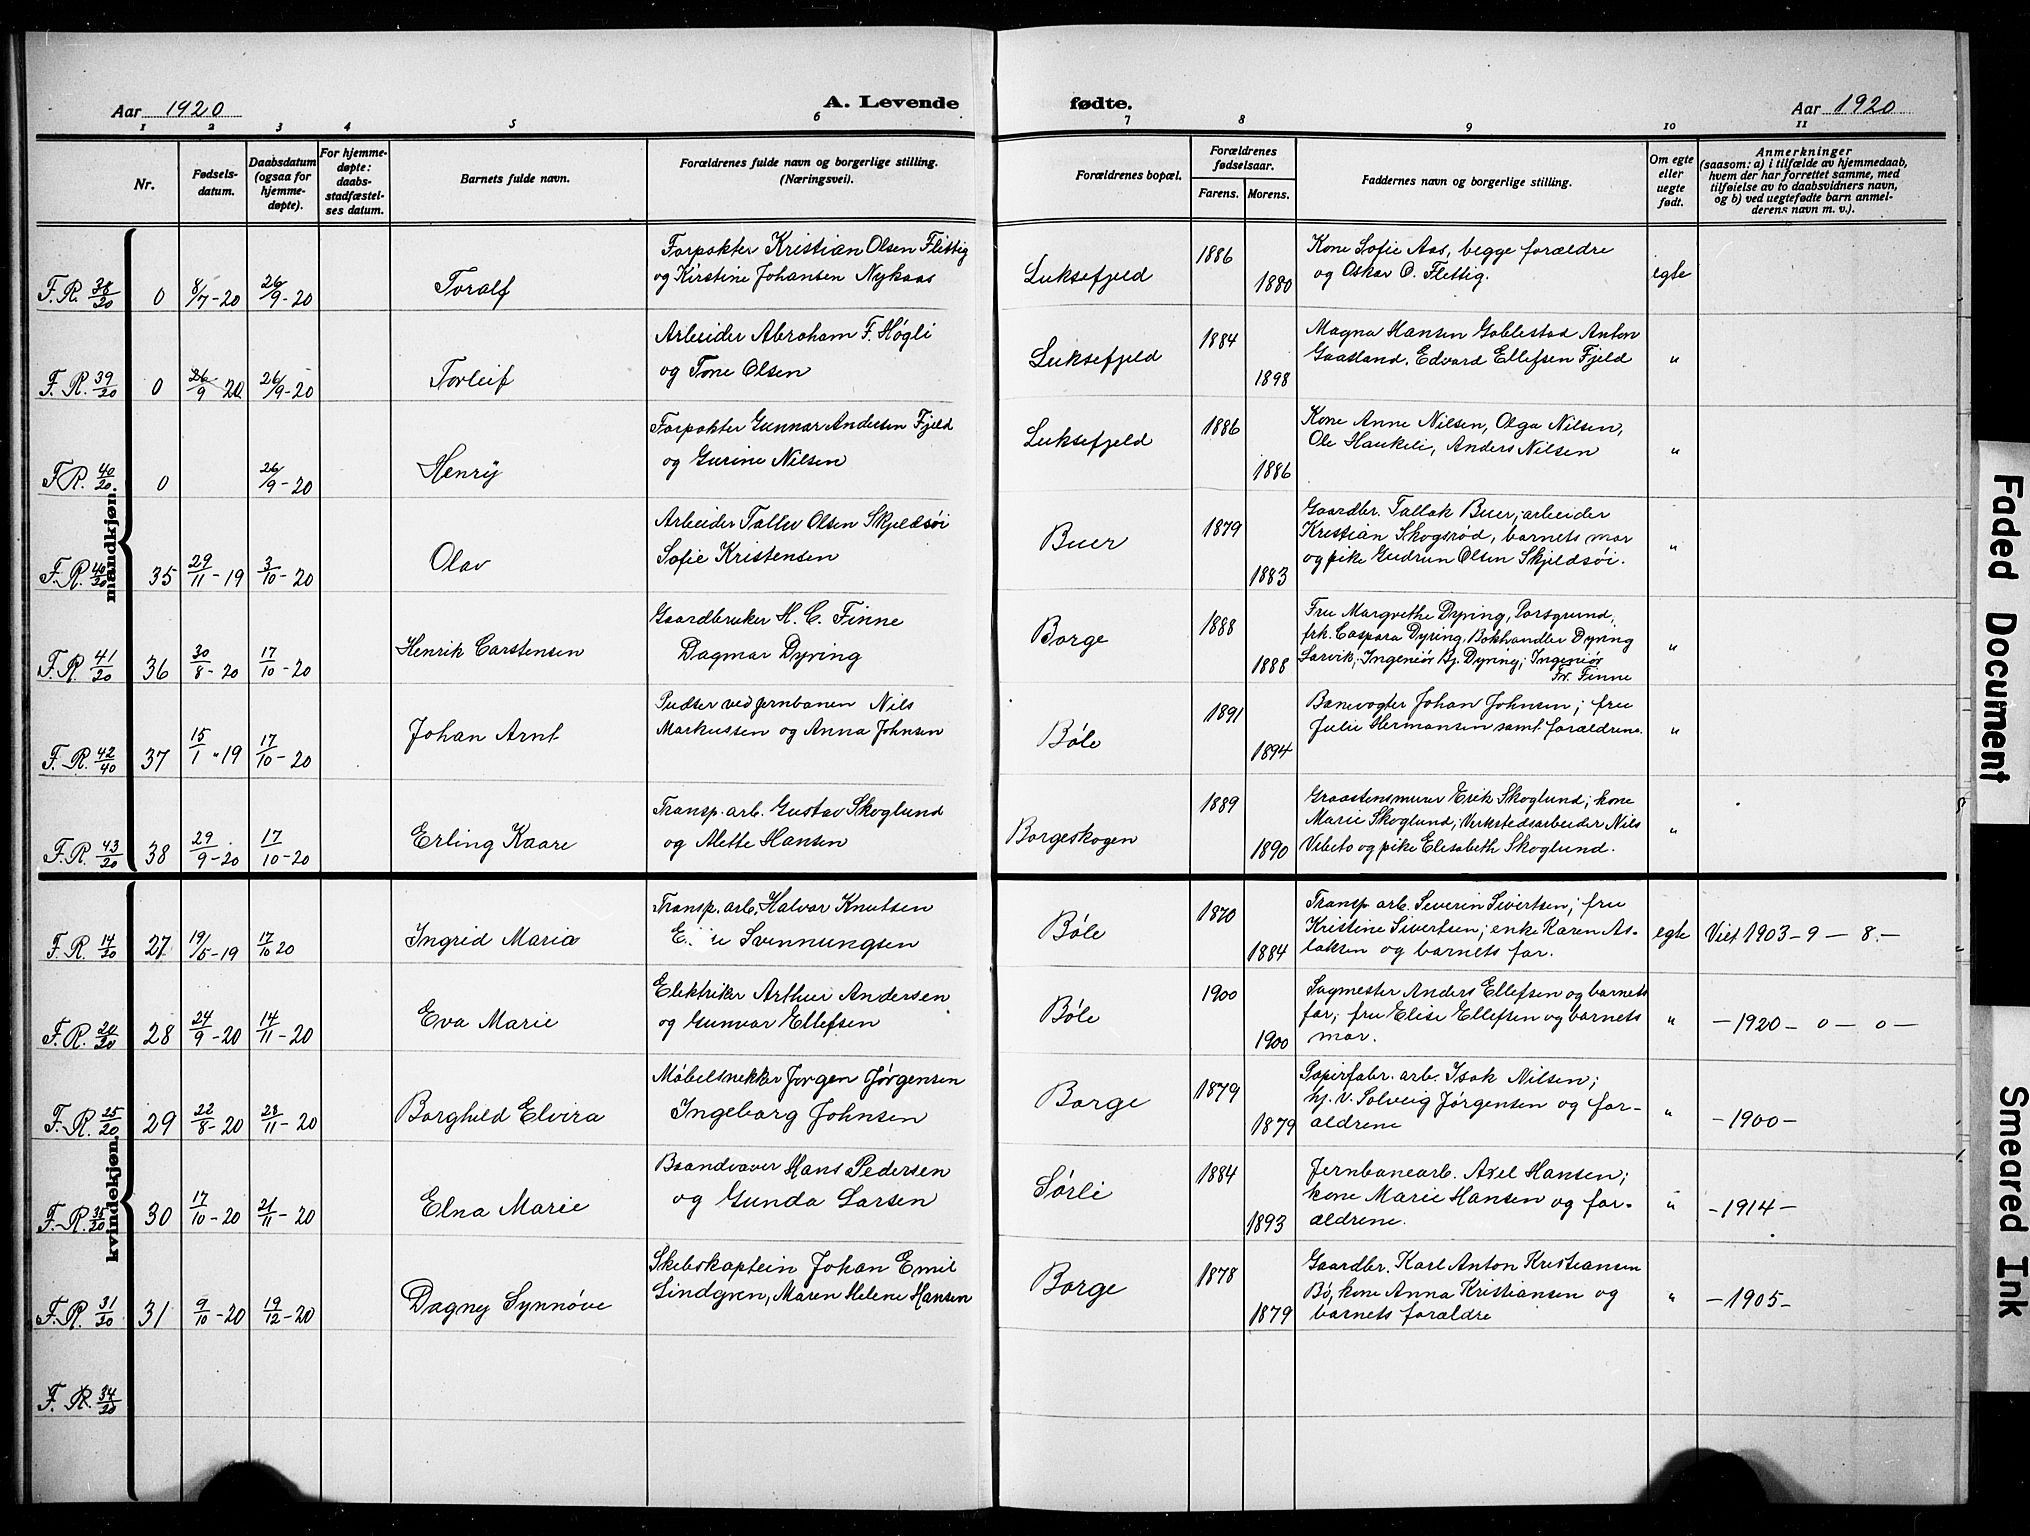 Aar 1920
A. Levende
fødte.
Aar 1920
1 2 3 4 5 6 7 8 9 10 11
Nr.
Fødsels-
datum.
Daabsdatum
(ogsaa for
hjemme-
døpte).
For hjemme-
døpte:
daabs-
stadfæstel-
ses datum.
Barnets fulde navn.
Forældrenes fulde navn og borgerlige stilling.
(Næringsvei).
Forældrenes bopæl.
Forældrenes
fødselsaar.
Farens. Morens.
Faddernes navn og borgerlige stilling.
Om egte
eller
uegte
født.
Anmerkninger
(saasom: a) i tilfælde av hjemmedaab,
hvem der har forrettet samme, med
tilføielse av to daabsvidners navn,
og b) ved uegtefødte barn anmel-
derens navn m. v.).
mandkjøn.
F. R. 38/20 0 8/7-20 26/9-20 Toralf
Forpakter Kristian Olsen Flittig
og Kirstine Johansen Nykaas
Luksefjeld 1886 1880
Kone Sofie Aas, begge forældre
og Oskar O. Flittig.
egte
F. R. 39/20 0 26/9-20 26/9-20 Torleif
Arbeider Abraham F. Høgli
og Tone Olsen
Luksefjeld 1884 1898
Magna Hansen Goblestad Anton
Gaasland, Edvard Ellefsen Fjeld
"
F. R. 40/20 0 26/9-20 Henry
Forpakter Gunnar Andersen Fjeld
og Gurine Nilsen
Luksefjeld 1886 1886
Kone Anne Nilsen, Olga Nilsen,
Ole Haukeli, Anders Nilsen
"
F. R. 40/20 35 29/11-19 3/10-20 Olav
Arbeider Tallev Olsen Skjeldsøi
Sofie Kristensen
Buer 1879 1883
Gaardbr. Tallak Buer, arbeider
Kristian Skogsrød, barnets mor
og pike Gudrun Olsen Skjeldsøi.
"
F. R. 41/20 36 30/8-20 17/10-20 Henrik Carstensen
Gaardbruker H. C. Finne
Dagmar Dyring
Borge 1888 1888
Fru Margrethe Dyring, Porsgrund,
frk. Caspara Dyring, Bokhandler Dyring
Larvik, Ingeniør Bj. Dyring, Ingeniør
Fr. Finne
"
F. R. 42/40 37 15/1-19 17/10-20 Johan Arnt
Pudser ved jernbanen Nils
Markussen og Anna Johnsen
Bøle 1891 1894
Banevogter Johan Johnsen; fru
Julie Hermansen samt forældrene
"
F. R. 43/20 38 29/9-20 17/10-20 Erling Kaare
Transp. arb. Gustav Skoglund
og Alette Hansen
Borgeskogen 1889 1890
Graastensmurer Erik Skoglund; kone
Marie Skoglund; Verkstedsarbeider Nils
Vibeto og pike Elisabeth Skoglund.
"
kvindekjøn.
F. R. 14/20 27 19/5-19 17/10 20 Ingrid Maria
Transp. arb. Halvor Knutsen
Svennungsen
Bøle 1870 1884
Transp. arb. Severin Sivertsen; fru
Kristine Sivertsen; enke Karen As-
laksen og barnets far.
egte Viet 1903-9-8-
F. R. 24/20 28 24/9-20 14/11-20 Eva Marie
Elektriker Arthur Andersen
og Gunvor Ellefsen
Bøle 1900 1900
Sagmester Anders Ellefsen og barnets
far; fru Elise Ellefsen og barnets
mor.
" -1920-0-0-
F. R. 25/20 29 22/8-20 28/11-20 Borghild Elvira
Møbelsnekker Jørgen Jørgensen
Ingeborg Johnsen
Borge 1879 1879
Papirfabr. arb. Isak Nilsen;
hj. v. Solveig Jørgensen og for-
ældrene
" -1900-
F. R. 35/20 30 17/10-20 21/11-20 Elna Marie
Brandvaver Hans Pedersen
og Gunda Larsen
Sørli 1884 1893
Jernbanearb. Axel Hansen;
kone Marie Hansen og for-
ældrene.
" -1914-
F. R. 31/20 31 9/10-20 19/12-20 Dagny Synnøve
Skibskaptein Johan Emil
Lindgren, Maren Helene Hansen
Borge 1878 1879
Gaardbr. Karl Anton Kristiansen
Bø, kone Anna Kristiansen og
barnets forældre
" -1905-
F. R. 34/20
Faded Document
Smeared Ink